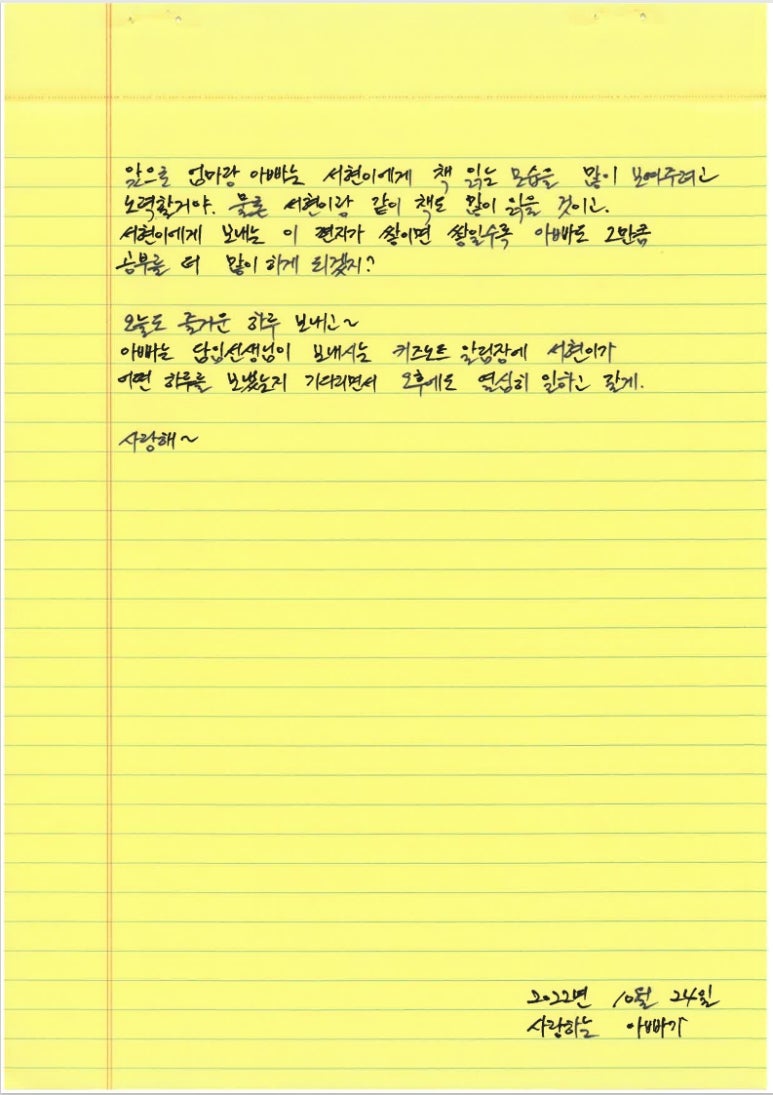 앞으로 엄마랑 아빠는 서현이에게 책 읽는 모습을 많이 보여주려고
노력할거야. 물론 서현이랑 같이 책도 많이 읽을 것이고.
서현이에게 보내는 이 편지가 쌓이면 쌓일수록 아빠도 그만큼
공부를 더 많이 하게 되겠지?
오늘도 즐거운 하루 보내고~
아빠는 담임선생님이 보내시는 키즈노트 알림장에 서현이가
어떤 하루를 보냈는지 기다리면서 오후에도 열심히 일하고 갈게.
사랑해~
2022년 10월 24일
사랑하는 아빠가